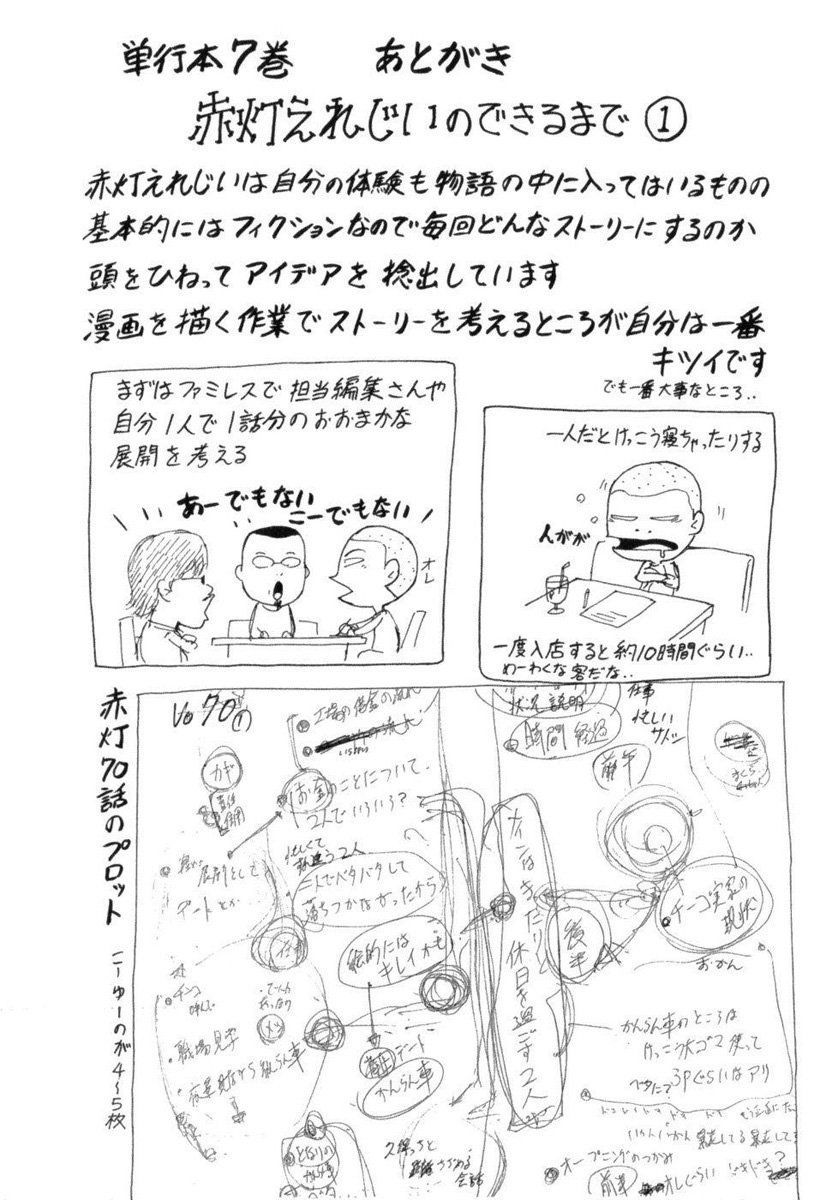 単行本7巻 あとがき
赤灯えれじいのできるまで ①
赤灯えれじいは自分の体験も物語の中に入ってはいるものの
基本的にはフィクションなので毎回どんなストーリーにするのか
頭をひねってアイデアを捻出しています
漫画を描く作業でストーリーを考えるところが自分は一番
キツイです
でも一番大事なところ..
まずはファミレスで担当編集さんや
自分1人で1話分のおおまかな
展開を考える
あーでもない
こーでもない
オレ
一人だとけっこう寝ちゃったりする
人がが
一度入店すると約10時間ぐらい..
めーわくな客だな..
赤灯70話のプロット
こーゆーのが4〜5枚
70
カギ
お金のことについて
2人でいろいろ?
忙しくて
二人でバタバタして
落ちつかなかったから
展開として
デートとか
仕事
チコ
職場見学
絵的には
キレイかも
前半
デート
かんらん車
となりの
会話
状況説明
時間経過
仕事
忙しい
前半
休日を過ごす2人
後半
チーコ実家の
現状
おかん
かんらん車のところは
けっこう大ゴマ使って
3Pぐらいはアリ
オープニングのつかみ
前半